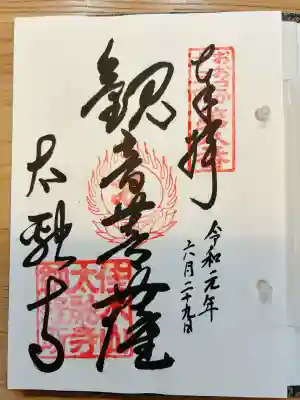 奉拝
令和元年
六月二十九日
観音菩薩
太融寺
太融寺